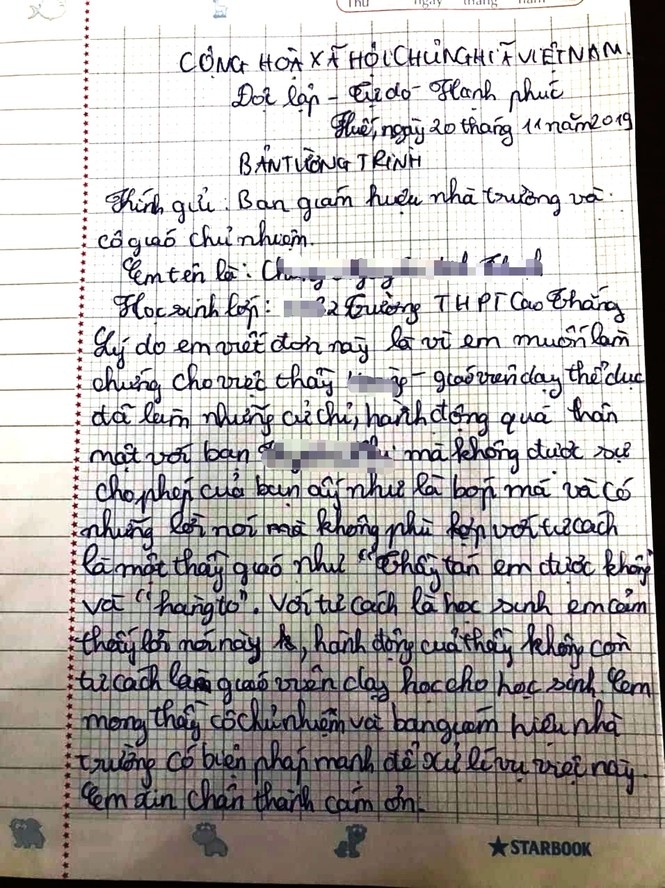 Thứ ngày tháng năm
CỘNG HOÀ XÃ HỘI CHỦ NGHĨA VIỆT NAM.
Độc lập - Tự do - Hạnh phúc
Huế, ngày 20 tháng 11 năm 2019
BẢN TƯỜNG TRÌNH
Kính gửi: Ban giám hiệu nhà trường và
cô giáo chủ nhiệm.
Em tên là: Ch
Học sinh lớp: 2 Trường THPT Cao Thắng
Lý do em viết đơn này là vì em muốn làm
chứng cho việc thầy - giáo viên dạy thể dục
đã làm những cử chỉ, hành động quá thân
mật với bạn mà không được sự
cho phép của bạn ấy như là bóp má và có
những lời nói mà không phù hợp với tư cách
là một thầy giáo như "Thầy tán em được không"
và "hàng to". Với tư cách là học sinh em cảm
thấy lời nói này, hành động của thầy không còn
tư cách làm giáo viên dạy học cho học sinh. Em
mong thầy cô chủ nhiệm và ban giám hiệu nhà
trường có biện pháp mạnh để xử lí vụ việc này.
Em xin chân thành cảm ơn.
STARBOOK